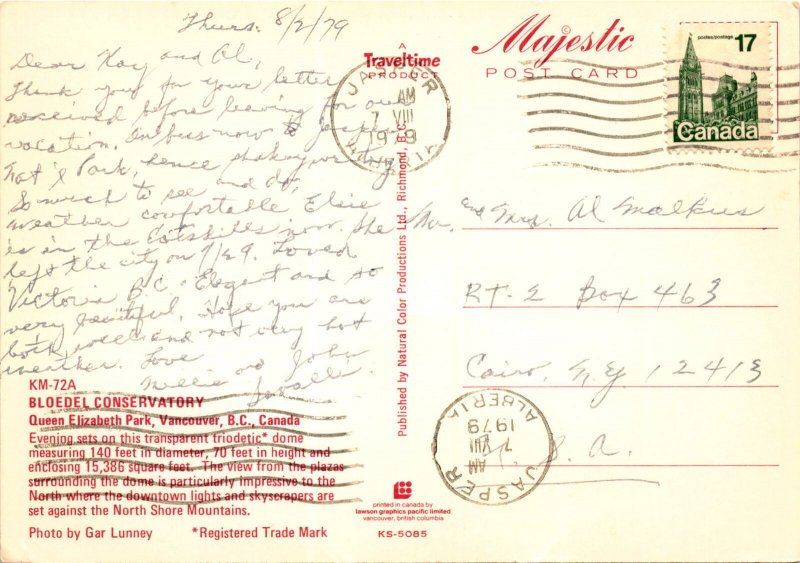 Thurs. 8/2/79
Dear Kay and Al,
Thank you for your letter
received before leaving for our
vacation. In bus now to Jasper
Nat'l Park, hence shaky writing.
So much to see and do,
weather comfortable. Elsie
is in the Catskills now. She
left the city on 7/29. Loved
Victoria B.C. Elegant and so
very beautiful. Hope you are
both well and not very hot
weather. Love
Millie and John
KM-72A
BLOEDEL CONSERVATORY
Queen Elizabeth Park, Vancouver, B.C., Canada
Evening sets on this transparent triodetic* dome
measuring 140 feet in diameter, 70 feet in height and
enclosing 15,386 square feet. The view from the plazas
surrounding the dome is particularly impressive to the
North where the downtown lights and skyscrapers are
set against the North Shore Mountains.
Photo by Gar Lunney *Registered Trade Mark
A
Traveltime
PRODUCT
JASPER
AM
7 VIII
ALBERTA
Published by Natural Color Productions Ltd., Richmond, B.C.
printed in canada by
lawson graphics pacific limited
vancouver, british columbia
KS-5085
Majestic
POST CARD
postes/postage 17
Canada
Mr. and Mrs. Al Malkus
RT-2 Box 463
Cairo, N.Y. 12413
U. S. A.
JASPER
AM
7 VIII
1979
ALBERTA